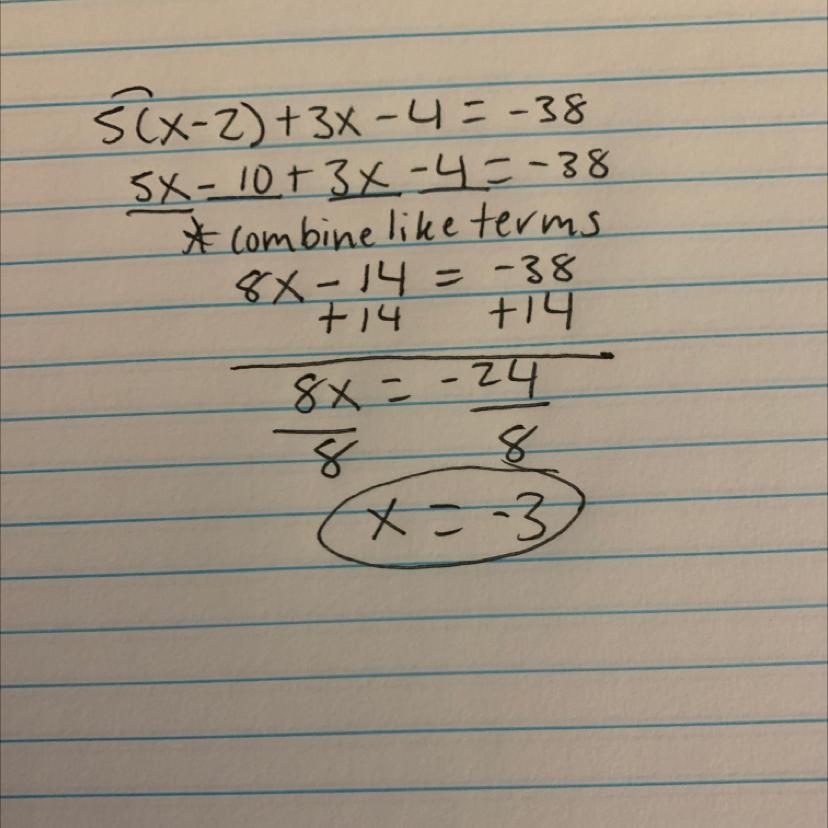 5(x-2)+3x-4=-38
5x-10+3x-4=-38
*combine like terms
8x-14 = -38
+14 +14
8x = -24
8 8
x = -3